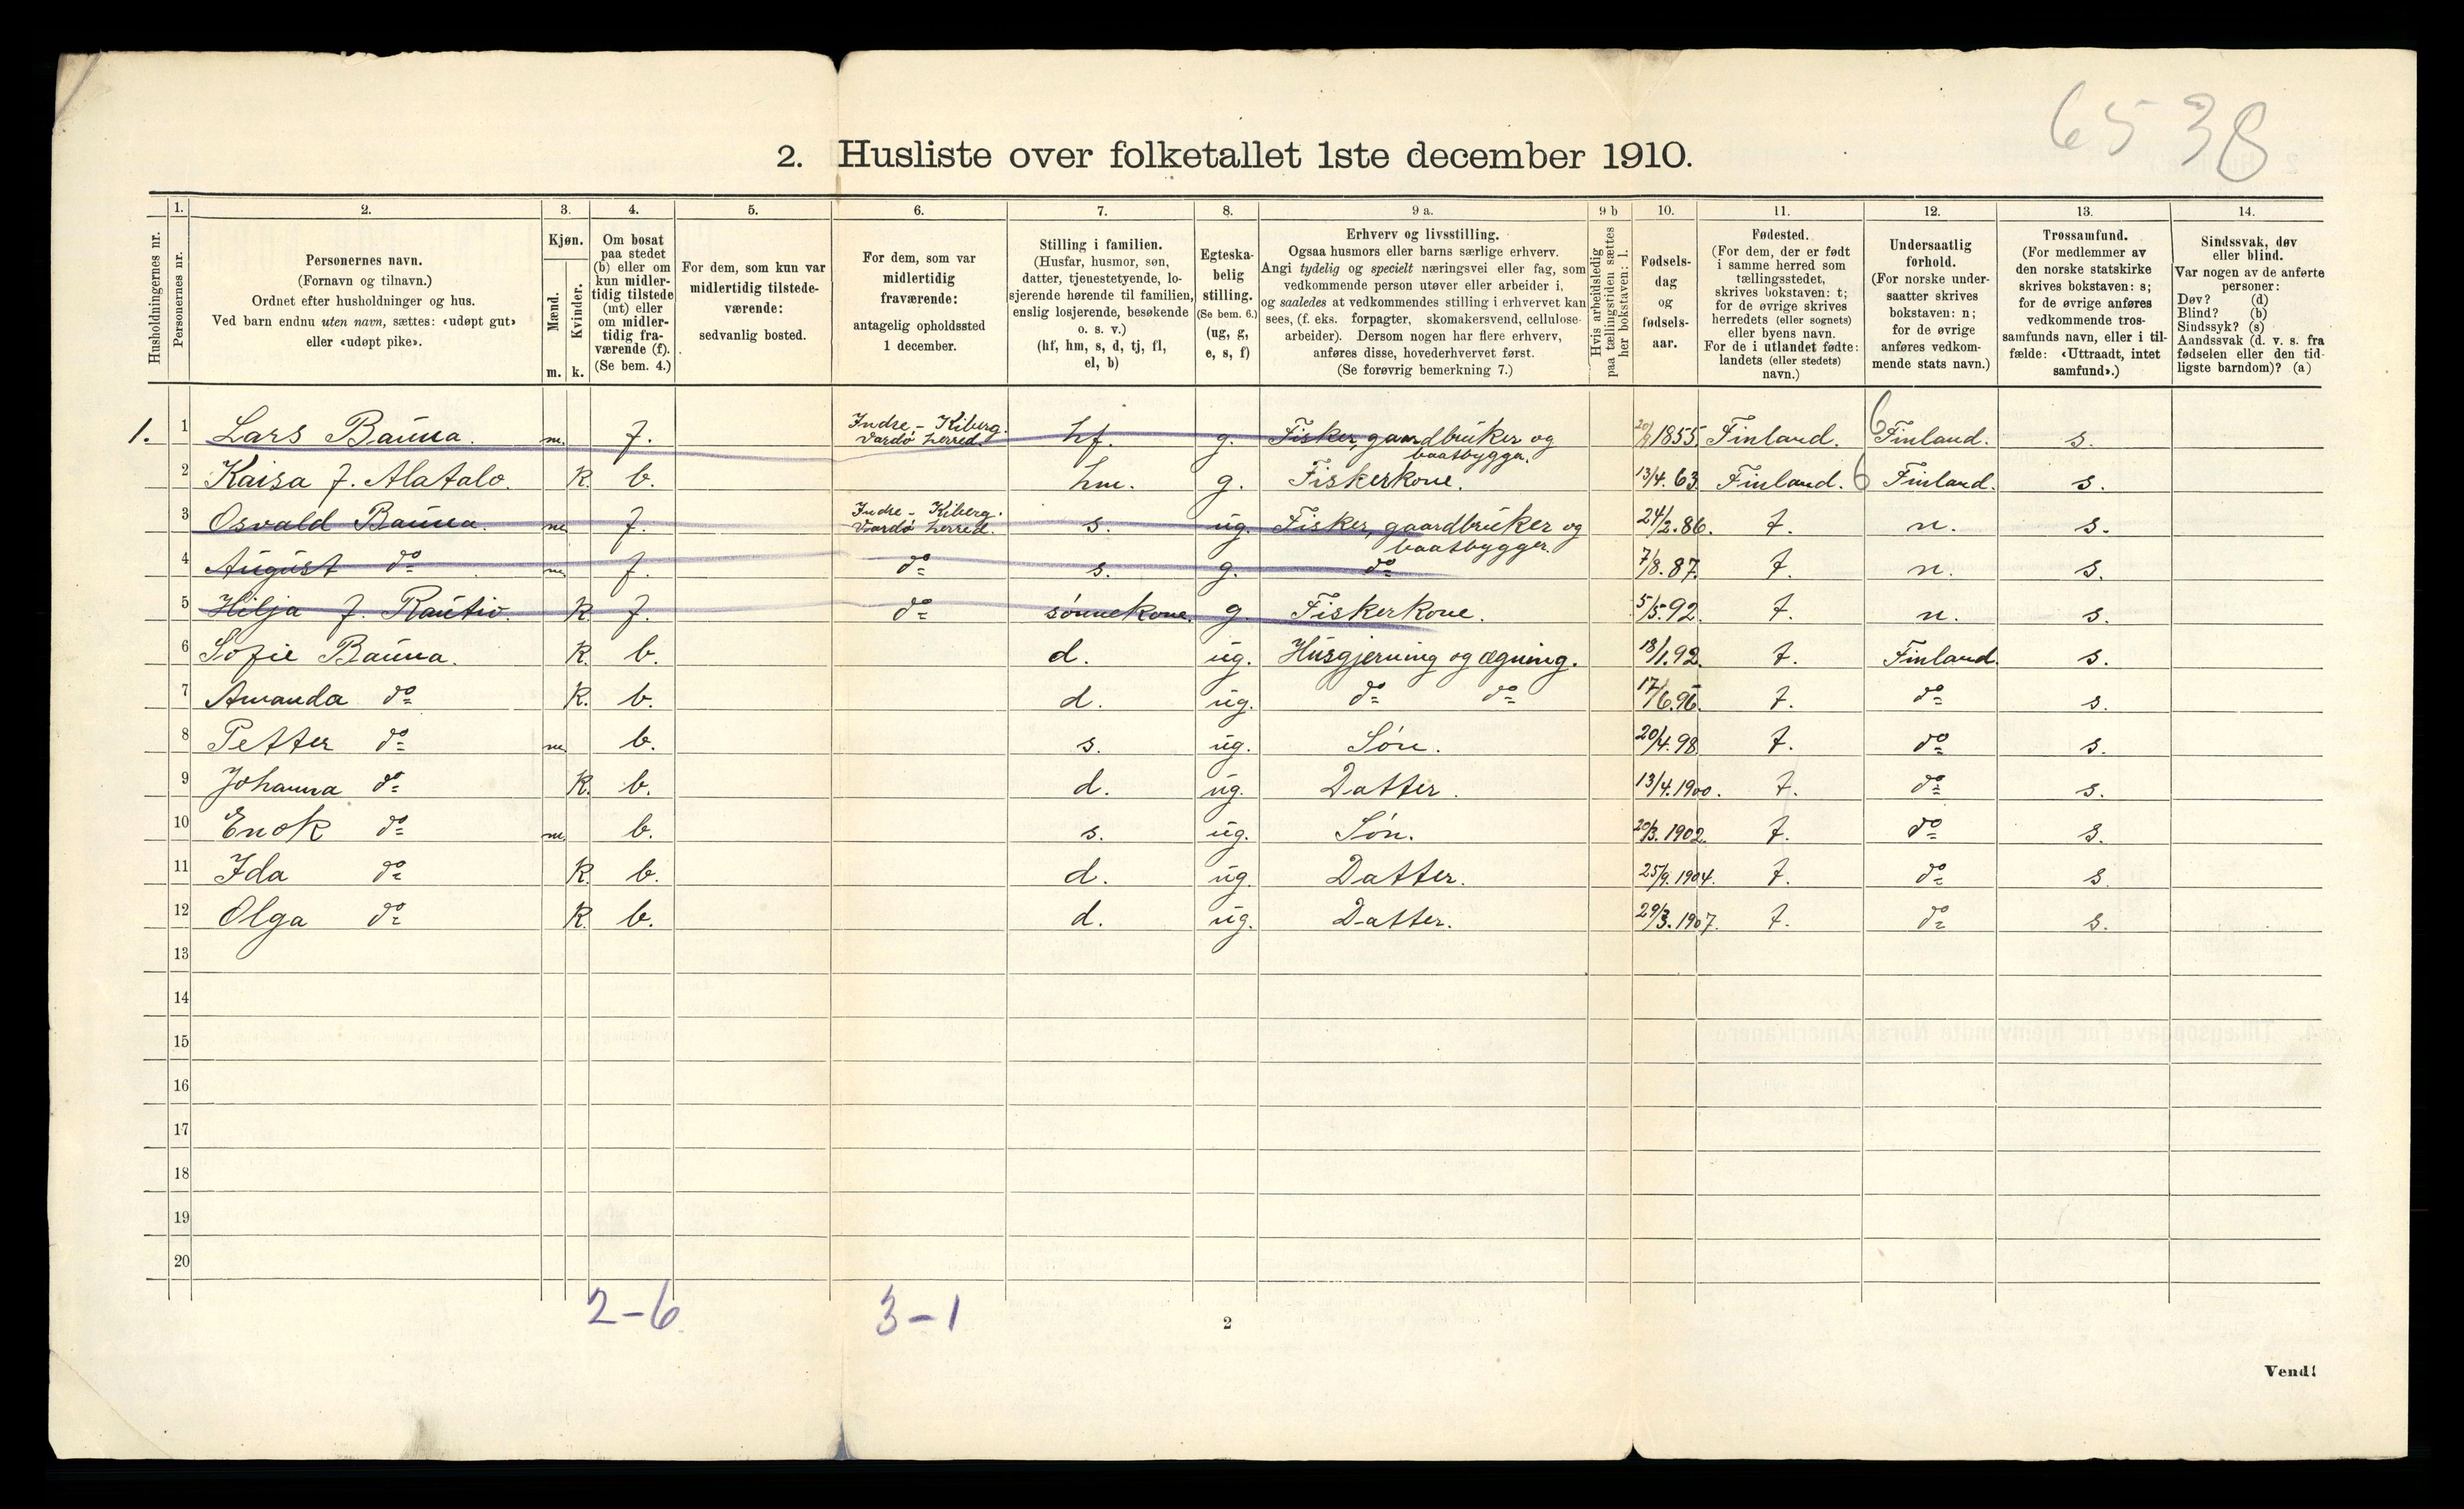 6538
2. Husliste over folketallet 1ste december 1910.
Husholdningernes nr.
1.
Personernes nr.
2.
Personernes navn.
(Fornavn og tilnavn.)
Ordnet efter husholdninger og hus.
Ved barn endnu uten navn, sættes: «udøpt gut»
eller «udøpt pike».
3.
Kjøn.
Mænd.
Kvinder.
m. k.
4.
Om bosat
paa stedet
(b) eller om
kun midler-
tidig tilstede
(mt) eller
om midler-
tidig fra-
værende (f).
(Se bem. 4.)
5.
For dem, som kun var
midlertidig tilstede-
værende:
sedvanlig bosted.
6.
For dem, som var
midlertidig
fraværende:
antagelig opholdssted
1 december.
7.
Stilling i familien.
(Husfar, husmor, søn,
datter, tjenestetyende, lo-
sjerende hørende til familien,
enslig losjerende, besøkende
o. s. v.)
(hf, hm, s, d, tj, fl,
el, b)
8.
Egteska-
belig
stilling.
(Se bem. 6.)
(ug, g,
e, s, f)
9 a.
Erhverv og livsstilling.
Ogsaa husmors eller barns særlige erhverv.
Angi tydelig og specielt næringsvei eller fag, som
vedkommende person utøver eller arbeider i,
og saaledes at vedkommendes stilling i erhvervet kan
sees, (f. eks. forpagter, skomakersvend, cellulose-
arbeider). Dersom nogen har flere erhverv,
anføres disse, hovederhvervet først.
(Se forøvrig bemerkning 7.)
9 b
Hvis arbeidsledig
paa tællingstiden sættes
her bokstaven: l.
10.
Fødsels-
dag
og
fødsels-
aar.
11.
Fødested.
(For dem, der er født
i samme herred som
tællingsstedet,
skrives bokstaven: t;
for de øvrige skrives
herredets (eller sognets)
eller byens navn.
For de i utlandet fødte:
landets (eller stedets)
navn.)
12.
Undersaatlig
forhold.
(For norske under-
saatter skrives
bokstaven: n;
for de øvrige
anføres vedkom-
mende stats navn.)
13.
Trossamfund.
(For medlemmer av
den norske statskirke
skrives bokstaven: s;
for de øvrige anføres
vedkommende tros-
samfunds navn, eller i til-
fælde: «Uttraadt, intet
samfund».)
14.
Sindssvak, døv
eller blind.
Var nogen av de anførte
personer:
Døv? (d)
Blind? (b)
Sindssyk? (s)
Aandssvak (d. v. s. fra
fødselen eller den tid-
ligste barndom)? (a)
1. 1 Lars Bauna. m. f. Indre - Kiberg. Vardø herred. hf. g. Fisker, gaardbruker og baatbygger. 1855. Finland. 6 Finland. s.
2 Kaisa f. Alatalo. K. b. hm. g. Fiskerkone. 13/4.63. Finland. 6 Finland. s.
3 Osvald Bauna. m. f. Indre - Kiberg. Vardø herred. s. ug. Fisker, gaardbruker og baatbygger. 24/2.86. t. n. s.
4 August do m. f. do s. g. do 7/8.87. t. n. s.
5 Hilja f. Rautio. K. f. do sønnekone. g. Fiskerkone. 5/5.92. t. n. s.
6 Sofie Bauna. K. b. d. ug. Husgjerning og egning. 18/1.92. t. Finland. s.
7 Amanda do K. b. d. ug. do do 17/6.96. t. do s.
8 Petter do m. b. s. ug. Søn. 20/4.98. t. do s.
9 Johanna do K. b. d. ug. Datter. 13/4.1900. t. do s.
10 Enok do m. b. s. ug. Søn. 20/3.1902. t. do s.
11 Ida do K. b. d. ug. Datter. 25/9.1904. t. do s.
12 Olga do K. b. d. ug. Datter. 29/3.1907. t. do s.
13
14
15
16
17
18
19
20
2-6 3-1
2
Vend!